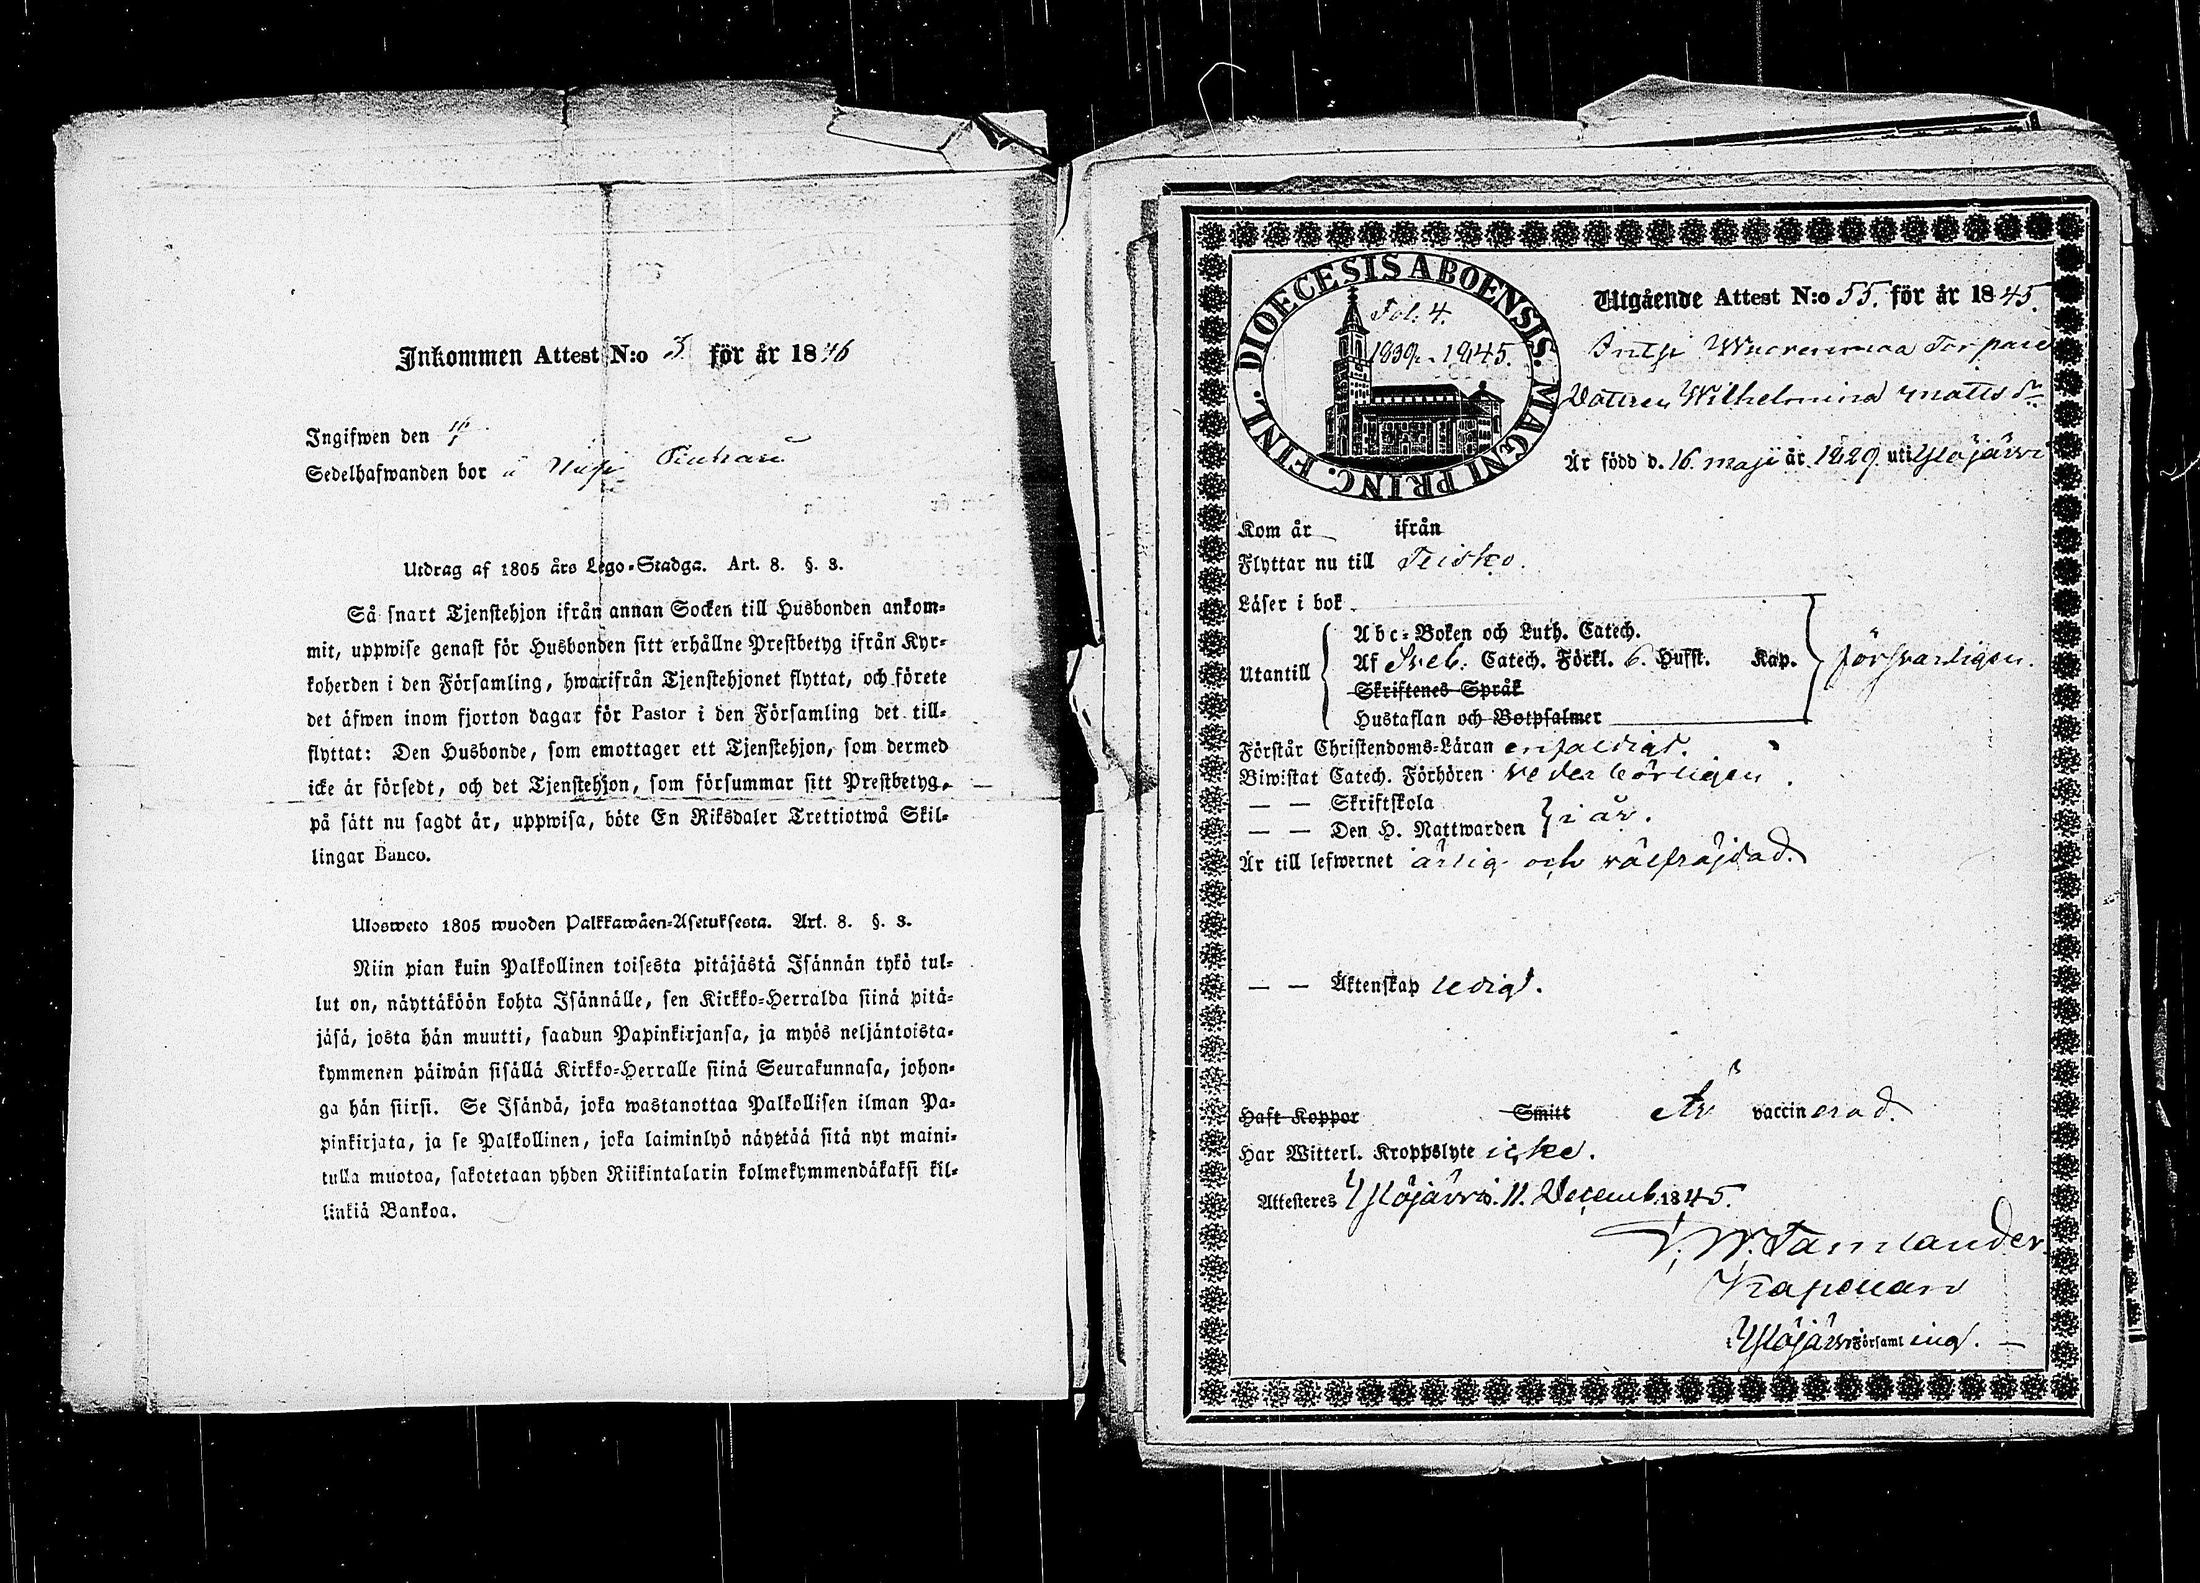 Inkommen Attest N:o 3 för år 1846
Ingifwen den
Sedelhafwanden bor
Utdrag af 1805 års Lego-Stadga. Art. 8. §. 3.
Så snart Tjenstehjon ifrån annan Socken till Husbonden ankom-
mit, uppwise genast för Husbonden sitt erhållne Prestbetyg ifrån Kyr-
koherden i den Församling, hwarifrån Tjenstehjonet flyttat, och förete
det äfwen inom fjorton dagar för Pastor i den Församling det till-
flyttat: Den Husbonde, som emottager ett Tjenstehjon, som dermed
icke är försedt, och det Tjenstehjon, som försummar sitt Prestbetyg,
på sätt nu sagdt är, uppwisa, böte En Riksdaler Trettiotwå Skil-
lingar Banco.
Ulosweto 1805 wuoden Palkkawäen-Asetuksesta. Art. 8. §. 3.
Niin pian kuin Palkollinen toisesta pitäjästä Isännän tykö tul-
lut on, näyttäköön kohta Isännälle, sen Kirkko-Herralda siinä pitä-
jäsä, josta hän muutti, saadun Papinkirjansa, ja myös neljäntoista-
kymmenen päiwän sisällä Kirkko-Herralle siinä Seurakunnasa, johon-
ga hän siirsi. Se Isändä, joka wastanottaa Palkollisen ilman Pa-
pinkirjata, ja se Palkollinen, joka laiminlyö näyttää sitä nyt maini-
tulla muotoa, sakotetaan yhden Riikintalarin kolmekymmendäkaksi kil-
linkiä Bankoa.
DIOECESIS ABOENSIS. MAGNI PRINC. FINL.
Fol. 4.
1839-1845.
Utgående Attest N:o 55. för år 1845.
Dottren Wilhelmina Matts dr
Är född d. 16. Maji år 1829. uti Ylöjärvi
Kom år ifrån
Flyttar nu till Teisko.
Läser i bok
Utantill
Abc-Boken och Luth. Catech.
Af Sveb. Catech. Förkl. 6. Hufst. Kap. försvarligen.
Skriftenes Språk
Hustaflan och Botpsalmer
Förstår Christendoms-Läran enfaldigt.
Biwistat Catech. Förhören vederbörligen.
— — Skriftskola
— — Den H. Nattwarden i år.
Är till lefwernet ärlig och välfräjdad.
— — Äktenskap ledigt.
Haft Koppor Smitt Är vaccinerad.
Har Witterl. Kroppslyte icke.
Attesteres Ylöjärvi. 11. Decemb. 1845.
Tamlander
Kapellan
i Ylöjärvi Församling. —